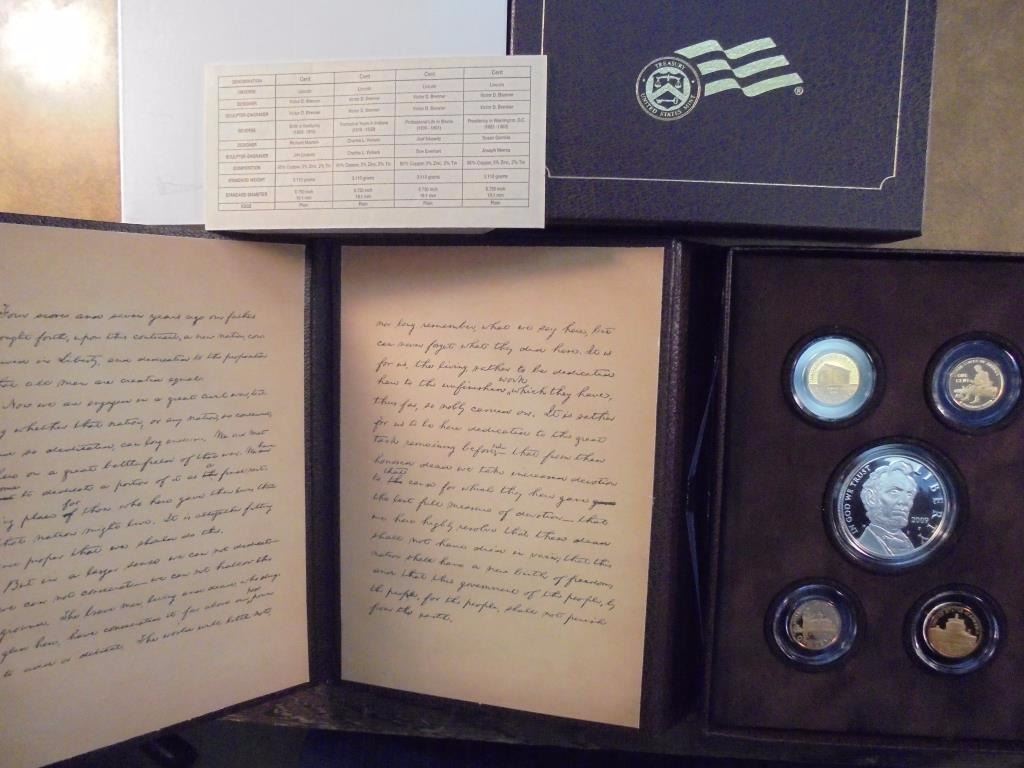 DENOMINATION Cent Cent Cent Cent
OBVERSE Lincoln Lincoln Lincoln Lincoln
DESIGNER Victor D. Brenner Victor D. Brenner Victor D. Brenner Victor D. Brenner
SCULPTOR-ENGRAVER Victor D. Brenner Victor D. Brenner Victor D. Brenner Victor D. Brenner
REVERSE Birth in Kentucky Formative Years in Indiana Professional Life in Illinois Presidency in Washington, D.C.
DESIGNER Richard Masters Charles L. Vickers Joel Iskowitz Susan Gamble
SCULPTOR-ENGRAVER Jim Licaretz Charles L. Vickers Don Everhart Joseph Menna
COMPOSITION 95% Copper, 3% Zinc, 2% Tin 95% Copper, 3% Zinc, 2% Tin 95% Copper, 3% Zinc, 2% Tin 95% Copper, 3% Zinc, 2% Tin
STANDARD WEIGHT 3.110 grams 3.110 grams 3.110 grams 3.110 grams
STANDARD DIAMETER 0.750 inch 0.750 inch 0.750 inch 0.750 inch
19.1 mm 19.1 mm 19.1 mm 19.1 mm
EDGE Plain Plain Plain Plain
TREASURY
UNITED STATES MINT
®
Four score and seven years ago our fathers
ought forth, upon this continent, a new nation, con
in Liberty, and dedicated to the proposition
all men are created equal.
Now we are engaged in a great civil war,
whether that nation, or any nation, so conceived,
so dedicated, can long endure. We are met
here on a great battle field of that war. We have
to dedicate a portion of it as a the
place for of those who here gave their lives that
that nation might live. It is altogether fitting
proper that we should do this.
But in a larger sense we can not dedicate
we can not consecrate we can not hallow this
ground. The brave men, living and dead, who
here, have consecrated it far above our poor
to add or detract. The world will little note,
nor long remember, what we say here, but
can never forget what they did here. It is
for us, the living, rather to be dedicated
here to the unfinished work which they have,
thus far, so nobly carried on. It is rather
for us to be here dedicated to the great
task remaining before us that from these
honored dead we take increased devotion
to that the cause for which they here gave
the last full measure of devotion that
we here highly resolve that these dead
shall not have died in vain; that this
nation shall have a new birth of freedom;
and that this government of the people, by
the people, for the people, shall not perish
from the earth.
ONE
CENT
IN GOD WE TRUST
LIBERTY
2009
P